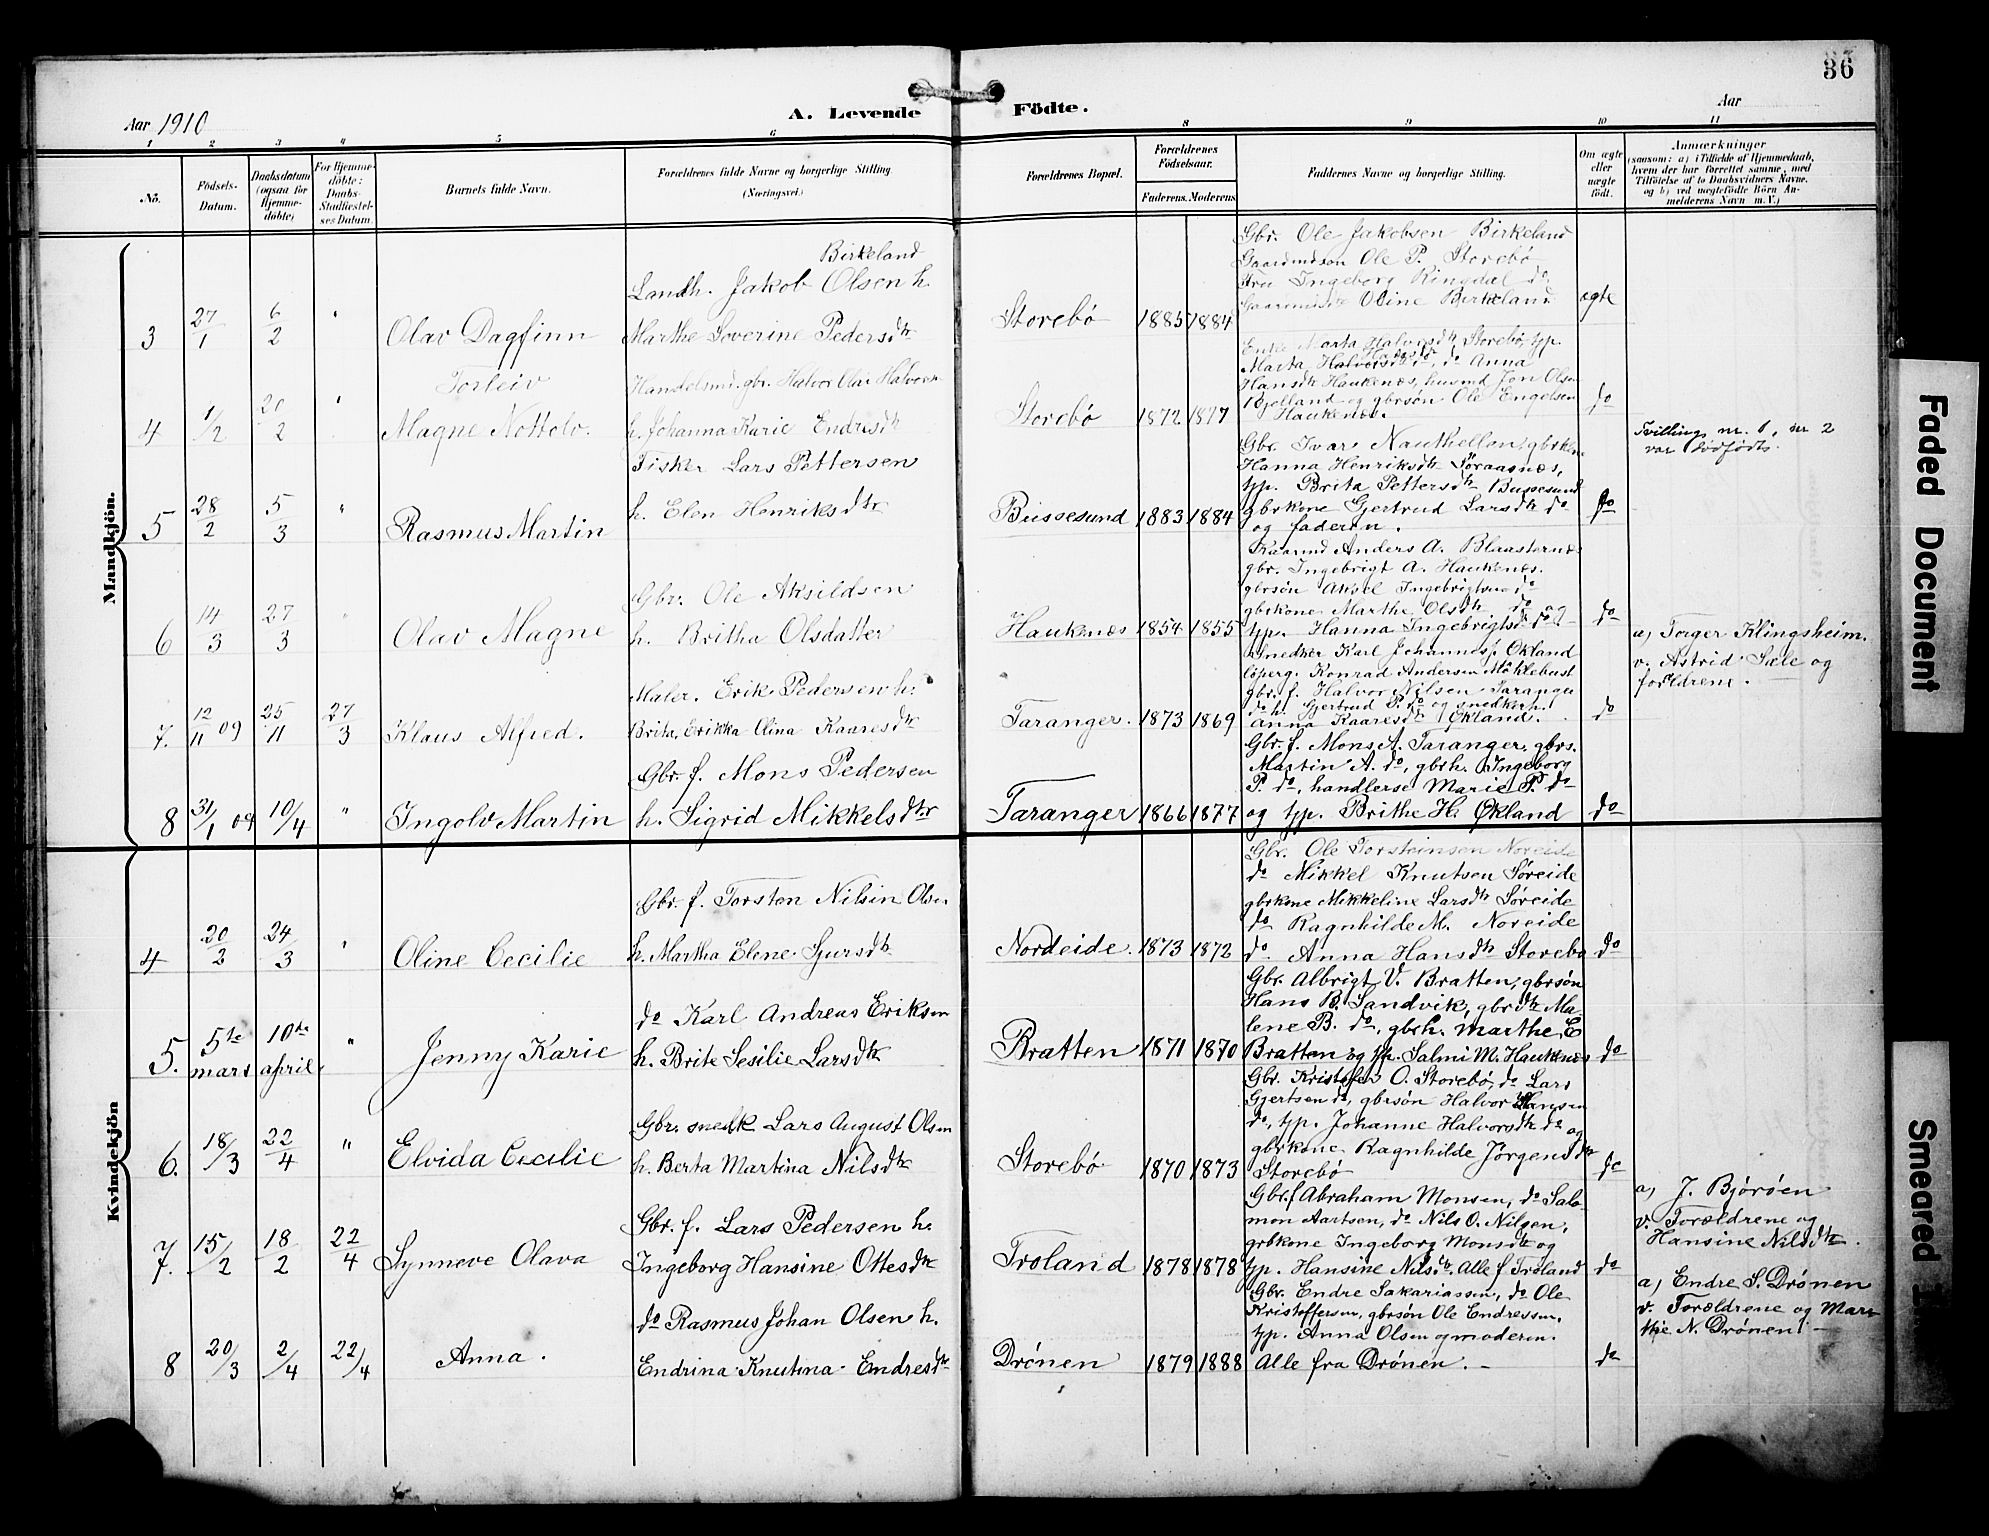 36
Aar 1910
A. Levende Födte.
Aar
1 2 3 4 5 6 8 9 10 11
No.
Födsels-Datum.
Daabsdatum (ogsaa for Hjemme-döbte)
For Hjemme-döbte: Daabs-Stadfæstel-ses Datum.
Barnets fulde Navn.
Forældrenes fulde Navne og borgerlige Stilling. (Næringsvei.)
Forældrenes Bopæl.
Forældrenes Födselsaar.
Faderens. Moderens.
Faddernes Navne og borgerlige Stilling.
Om ægte eller uægte födt.
Anmærkninger
(saasom: a) i Tilfælde af Hjemmedaab,
hvem der har forrettet samme, med
Tilföielse af to Daabsvidners Navne,
og b) ved uægtefödte Börn An-
melderens Navn m. V.)
Mandkjön.
3 27/1 6/2 " Olav Dagfinn
Birkeland
Landh. Jakob Olsen h.
Marthe Severine Pedersdtr
Storebö 1885 1884
Gbr. Ole Jakobsen Birkeland
Ole P. Storebö
Fru Ingeborg Ringdal do
Oline Birkeland
ægte
4 1/2 20/2 " Torleiv
Magne Nottolv.
Handelsmd. gbr. Halvor Olai Halvorsen
h. Johanna Karie Endresdtr
Storebö 1872 1877
Enke Marta Halvorsdtr Storebö, tp.
Marta Halvorsdtr do, do Anna
Hansdtr Haukenæs, husmd Jon Olsen
Bjelland og gbrsøn Ole Engelsen
Haukenæs.
do
Tvilling nr. 1, nr 2
var dødfødt.
5 28/2 5/3 " Rasmus Martin
Fisker Lars Pettersen
h. Elen Henriksdtr
Bussesund 1883 1884
Gbr. Ivar Nauthellen, gbrkone
Hanna Henriksdtr Søraasnæs,
tp. Brita Pettersdtr Bussesund
gbrkone Gjertrud Larsdtr do
og faderen.
do
6 14/3 27/3 " Olav Magne
Gbr. Ole Aksildsen
h. Britha Olsdatter
Haukenæs 1854 1855
Anders A. Blaasternæs
gbr. Ingebrigt A. Haukenæs.
gbrsön Aksel Ingebrigtsen do
gbrkone Marthe Olsdtr do og
tp. Hanna Ingebrigtsd do
do
7. 12/11 09 25/11 27/3 Klaus Alfred.
Maler. Erik Pedersen h.
Brita, Erikka Olina Kaaresdtr
Taranger. 1873 1869
Snedker Karl Johannes. Økland
löperg. Konrad Andersen Møklebust
gbr. f. Halvor Nilsen Taranger
do h. Gjertrud P. do og snedkerh.
Anna Kaaresdtr Økland.
do
a, Torger Klingsheim.
v. Astrid Sæle og
forældrene.
8 31/1 09 10/4 " Ingolv Martin
Gbr. f. Mons Pedersen
h. Sigrid Mikkelsdtr
Taranger 1866 1877
Gbr. f. Mons A. Taranger, gbrs.
Martin A. do, gbrh. Ingeborg
P. do, handlerse Marie P. do
og tp. Brithe H. Økland
do
Kvindekjön
4 20/2 24/3 " Oline Cecilie
Gbr. f. Torsten Nilsin Olsen
h. Martha Elene Sjursdtr
Nordeide. 1873 1872
Gbr. Ole Torsteinsen Noreide
do Mikkel Knutsen Søreide
gbrkone Mikkeline Larsdtr Søreide
do Ragnhilde M. Noreide
do. Anna Hansdtr Storebø
do
5. 5te mars 10de april " Jenny Karie
do Karl Andreas Eriksen
h. Brite Sesilie Larsdtr
Bratten 1871 1870
Gbr. Albrigt V. Bratten, gbrsøn
Hans B. Sandvik, gbrdtr Ma-
lene B. do, gbrh. Marthe E
Bratten og tp. Salmi M. Haukenæs
do
6. 18/3 22/4 " Elvida Cecilie
Gbr. snedk Lars August Olsen
h. Berta Martina Nilsdtr
Storebö 1870 1873
Gbr. Kristofer O. Storebö, do Lars
Gjertsen do, gbrsøn Halvor Hansen
do, tp. Johanne Halvorsdtr do og
gbrkone Ragnhilde Jørgensdtr
Storebö
do
7. 15/2 18/2 22/4 Synneve Olava
Gbr. f. Lars Pedersen h.
Ingeborg Hansine Ottesdtr
Troland 1878 1878
Gbr. f Abraham Monsen, do Salo-
mon Aartsen, do Nils O. Nilsen,
grbkone Ingeborg Monsdtr og
tp. Hansine Nilsdtr. Alle f Troland
do
a, J. Bjørøen
v. Forældrene og
Hansine Nilsdtr.
8 20/3 2/4 22/4 Anna.
do Rasmus Johan Olsen h.
Endrina Knutina Endresdtr
Drönen 1879 1888
Gbr. Endre Sakariassen, do Ole
Kristoffersen, gbrsøn Ole Endressen,
tp. Anna Olsen og moderen.
Alle fra Drönen.
do
a, Endre S. Drönen
v. Forældrene og Mar-
thje N. Drönen. -
Faded Document
Smeared